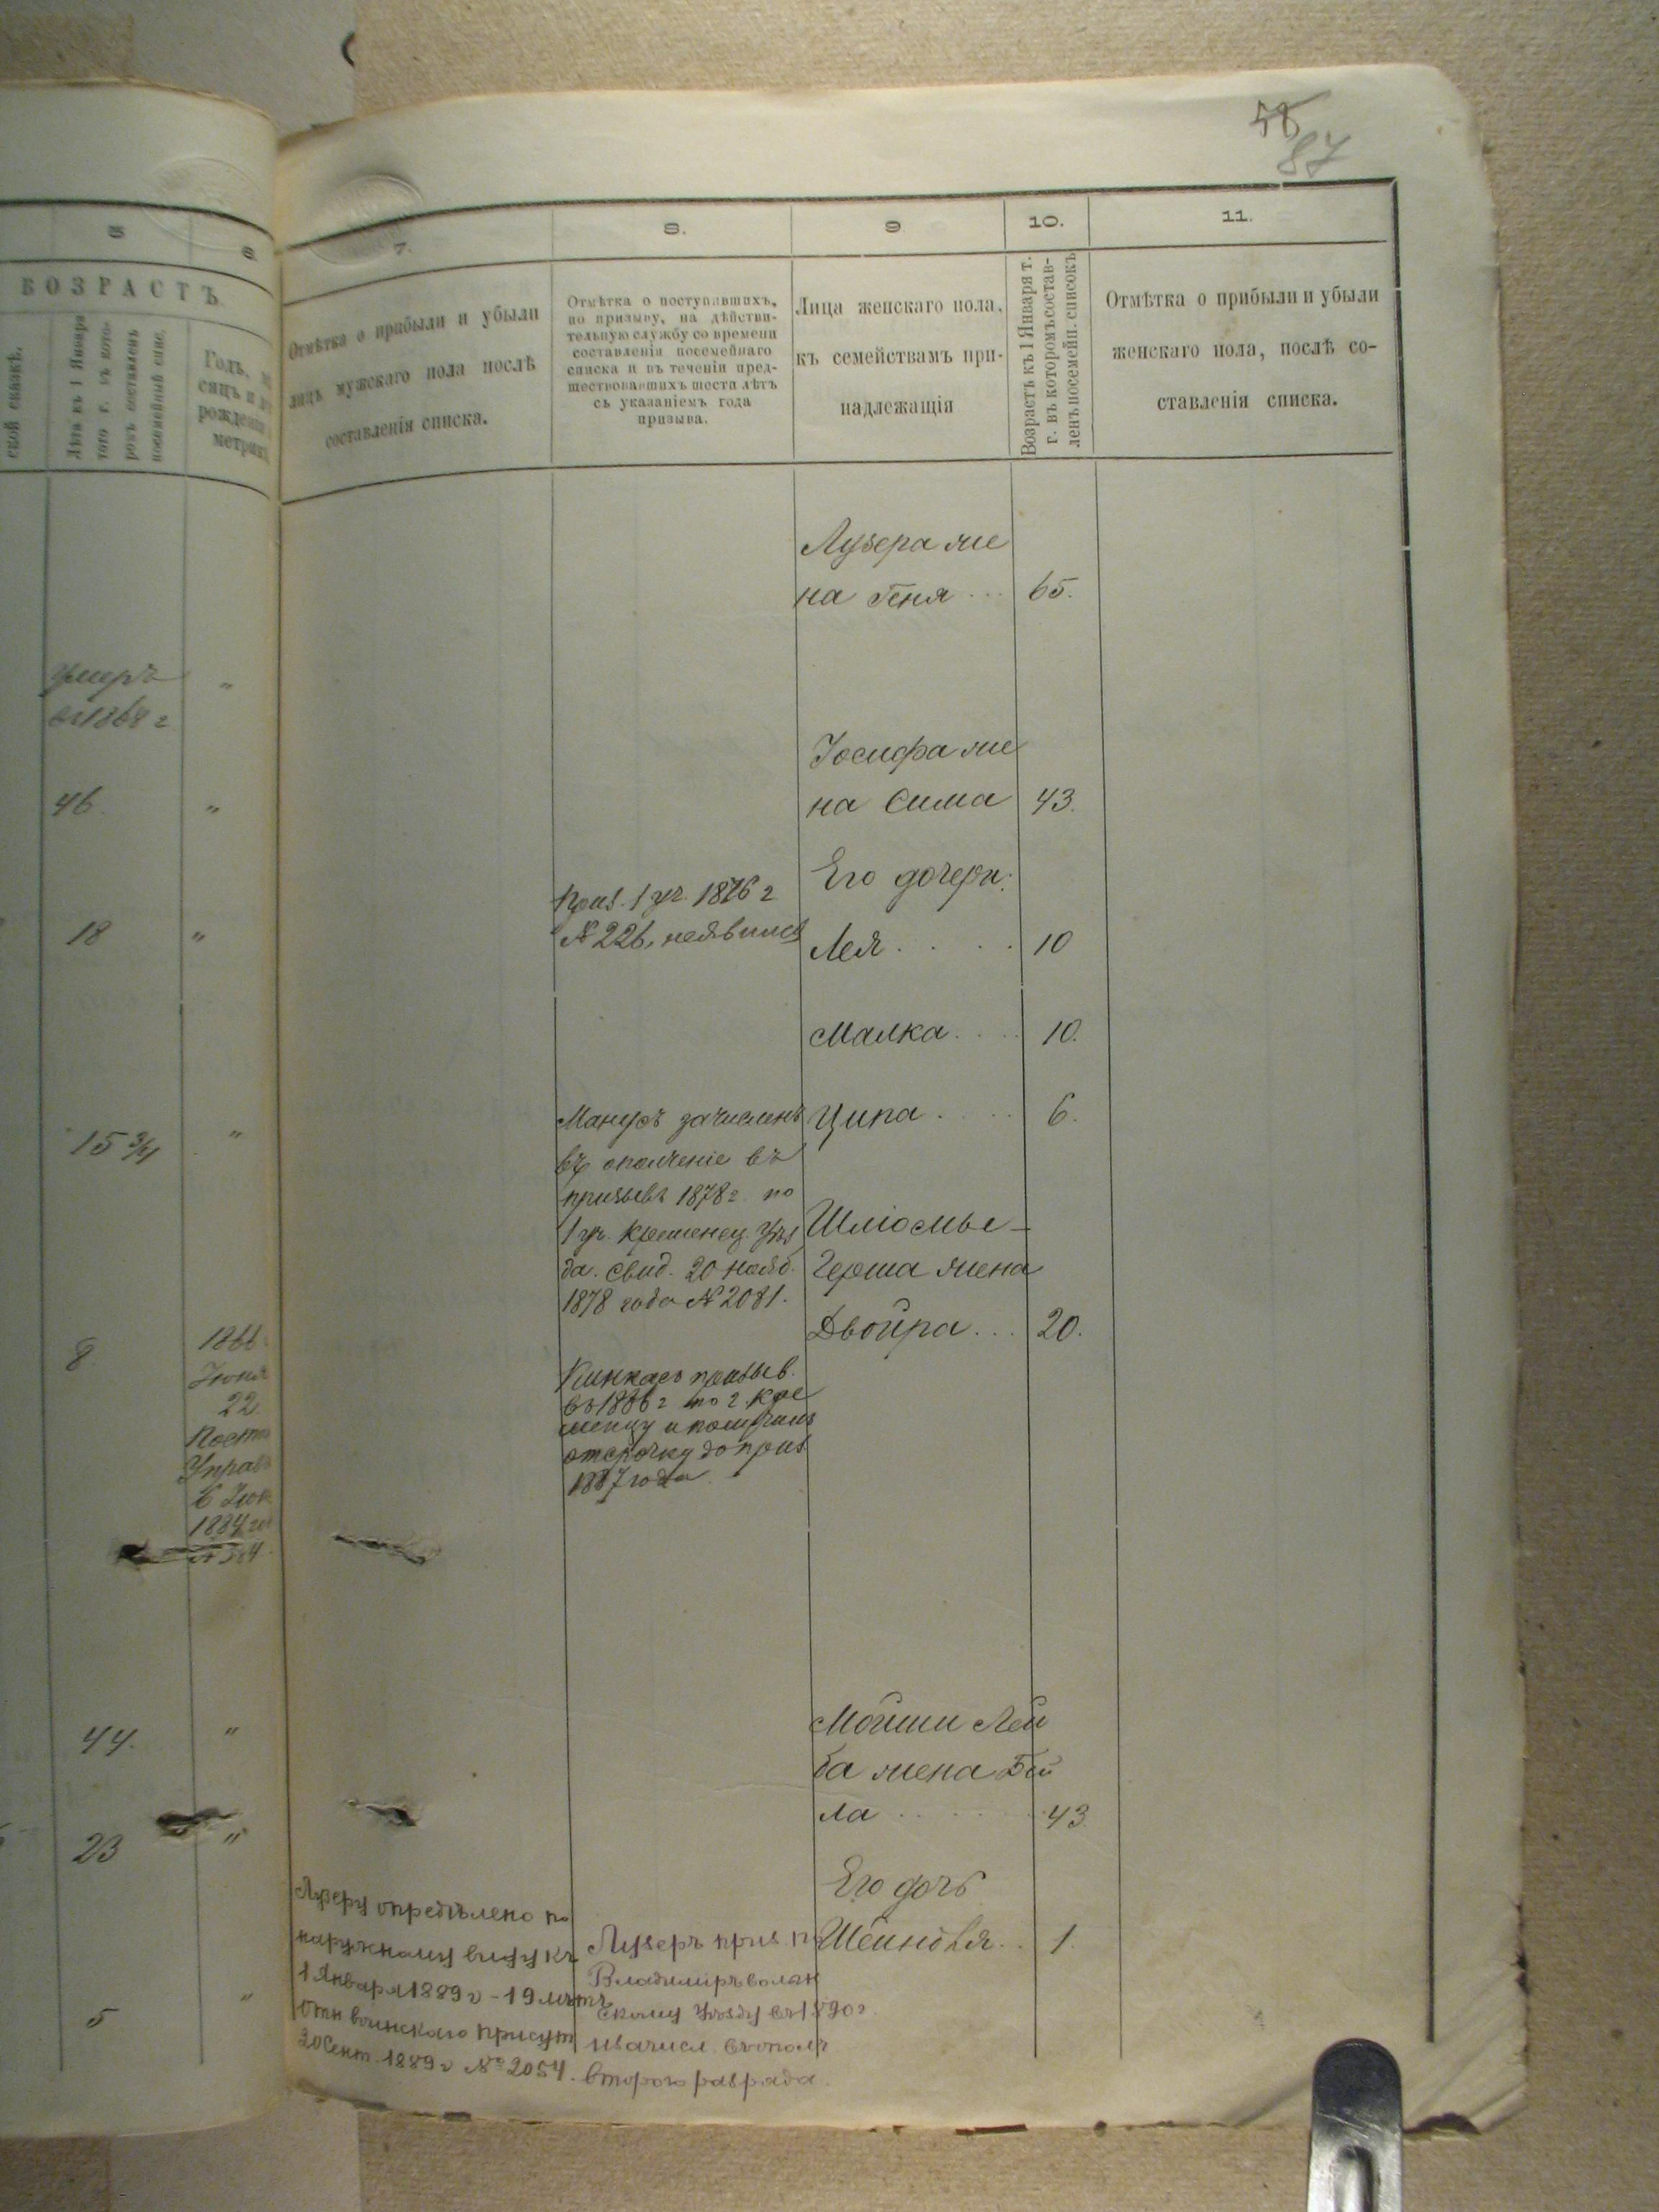 58
87
5
6.
ВОЗРАСТЪ
ской сказкѣ.
Лѣта къ 1 Января
того г. въ кото-
ромъ составленъ
посемейный спис.
Годъ, мѣ
сяцъ и
рожденія
метрик
умеръ
въ 1868 г
46.
"
18
"
15 3/4
"
8.
1866
Іюня
22
Пост
Управ
6 Іюн
1884 го
№ 384
44.
"
23
"
5
"
7.
8.
9
10.
11.
Отмѣтка о прибыли и убыли
лицъ мужскаго пола послѣ
составленія списка.
Отмѣтка о поступавшихъ,
по призыву, на дѣйстви-
тельную службу со времени
составленія посемейнаго
списка и въ теченіи пред-
шествовавшихъ шести лѣтъ
съ указаніемъ года
призыва.
Лица женскаго пола,
къ семействамъ при-
надлежащія
Возрастъ къ 1 Января т.
г. въ которомъ состав-
ленъ посемейн. списокъ
Отмѣтка о прибыли и убыли
женскаго пола, послѣ со-
ставленія списка.
Лузера же
на Геня ... 65.
Іосифа же
на Сима 43.
Его дочери:
Приз. 1 уч. 1876 г
№ 226, неявился
Лея . . . . 10
Малка . . . . 10.
Манусъ зачисленъ
въ ополченіе въ
призывъ 1878 г. по
1 уч. Кременец. Уѣз
да. Свид. 20 нояб.
1878 года № 2081.
Ципа . . . . 6.
Шліомы-
Герша жена
Двойра ... 20.
Пинкасъ призыв.
въ 1886 г по г. Кре
менцу и получилъ
отсрочку до приз
1887 года
Мойши Лей
ба жена Бей
ла . . . . . . 43
Его дочь
Шейндля . . 1.
Лузеру опредѣлено по
наружному виду къ
1 Января 1889 г - 19 лѣтъ
Отн воинскаго присут
20 Сент. 1889 г № 2054.
Лузеръ приз. по
Владиміръволын
скому Уѣзду въ 1890 г.
изачисл. въ ополч
второго разряда.